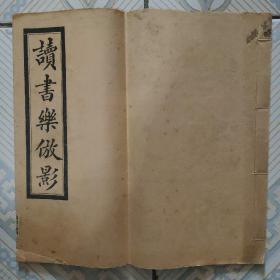 讀書樂倣影